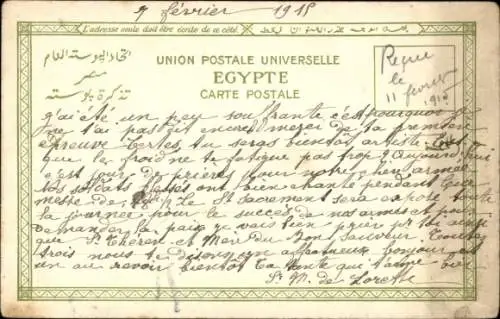 7 février 1915
L'adresse seule doit être écrite de ce côté.
اتحاد البوسته العام
مصر
تذكرة بوسته
UNION POSTALE UNIVERSELLE
EGYPTE
CARTE POSTALE
Reçue
le
11 février
1915
j'ai été un peu souffrante c'est pourquoi je
ne t'ai pas dit encore merci de ta première
épreuve certes, tu seras bientôt artiste
que le froid ne te fatigue pas trop? Aujourd'hui
c'est jour de prières pour notre chère armée
Nos soldats blessés ont bien chanté pendant
messe de Le St Sacrement sera exposé toute
la journée pour le succès de nos armes et pour
demander la paix je vais bien prier pr toi ainsi
que Sr Thérèse et Mère du Bon Sauveur Toutes
trois nous te disons un affectueux bonjour et
un au revoir bientôt Ta tante qui t'aime bien
Sr M. de Lorette